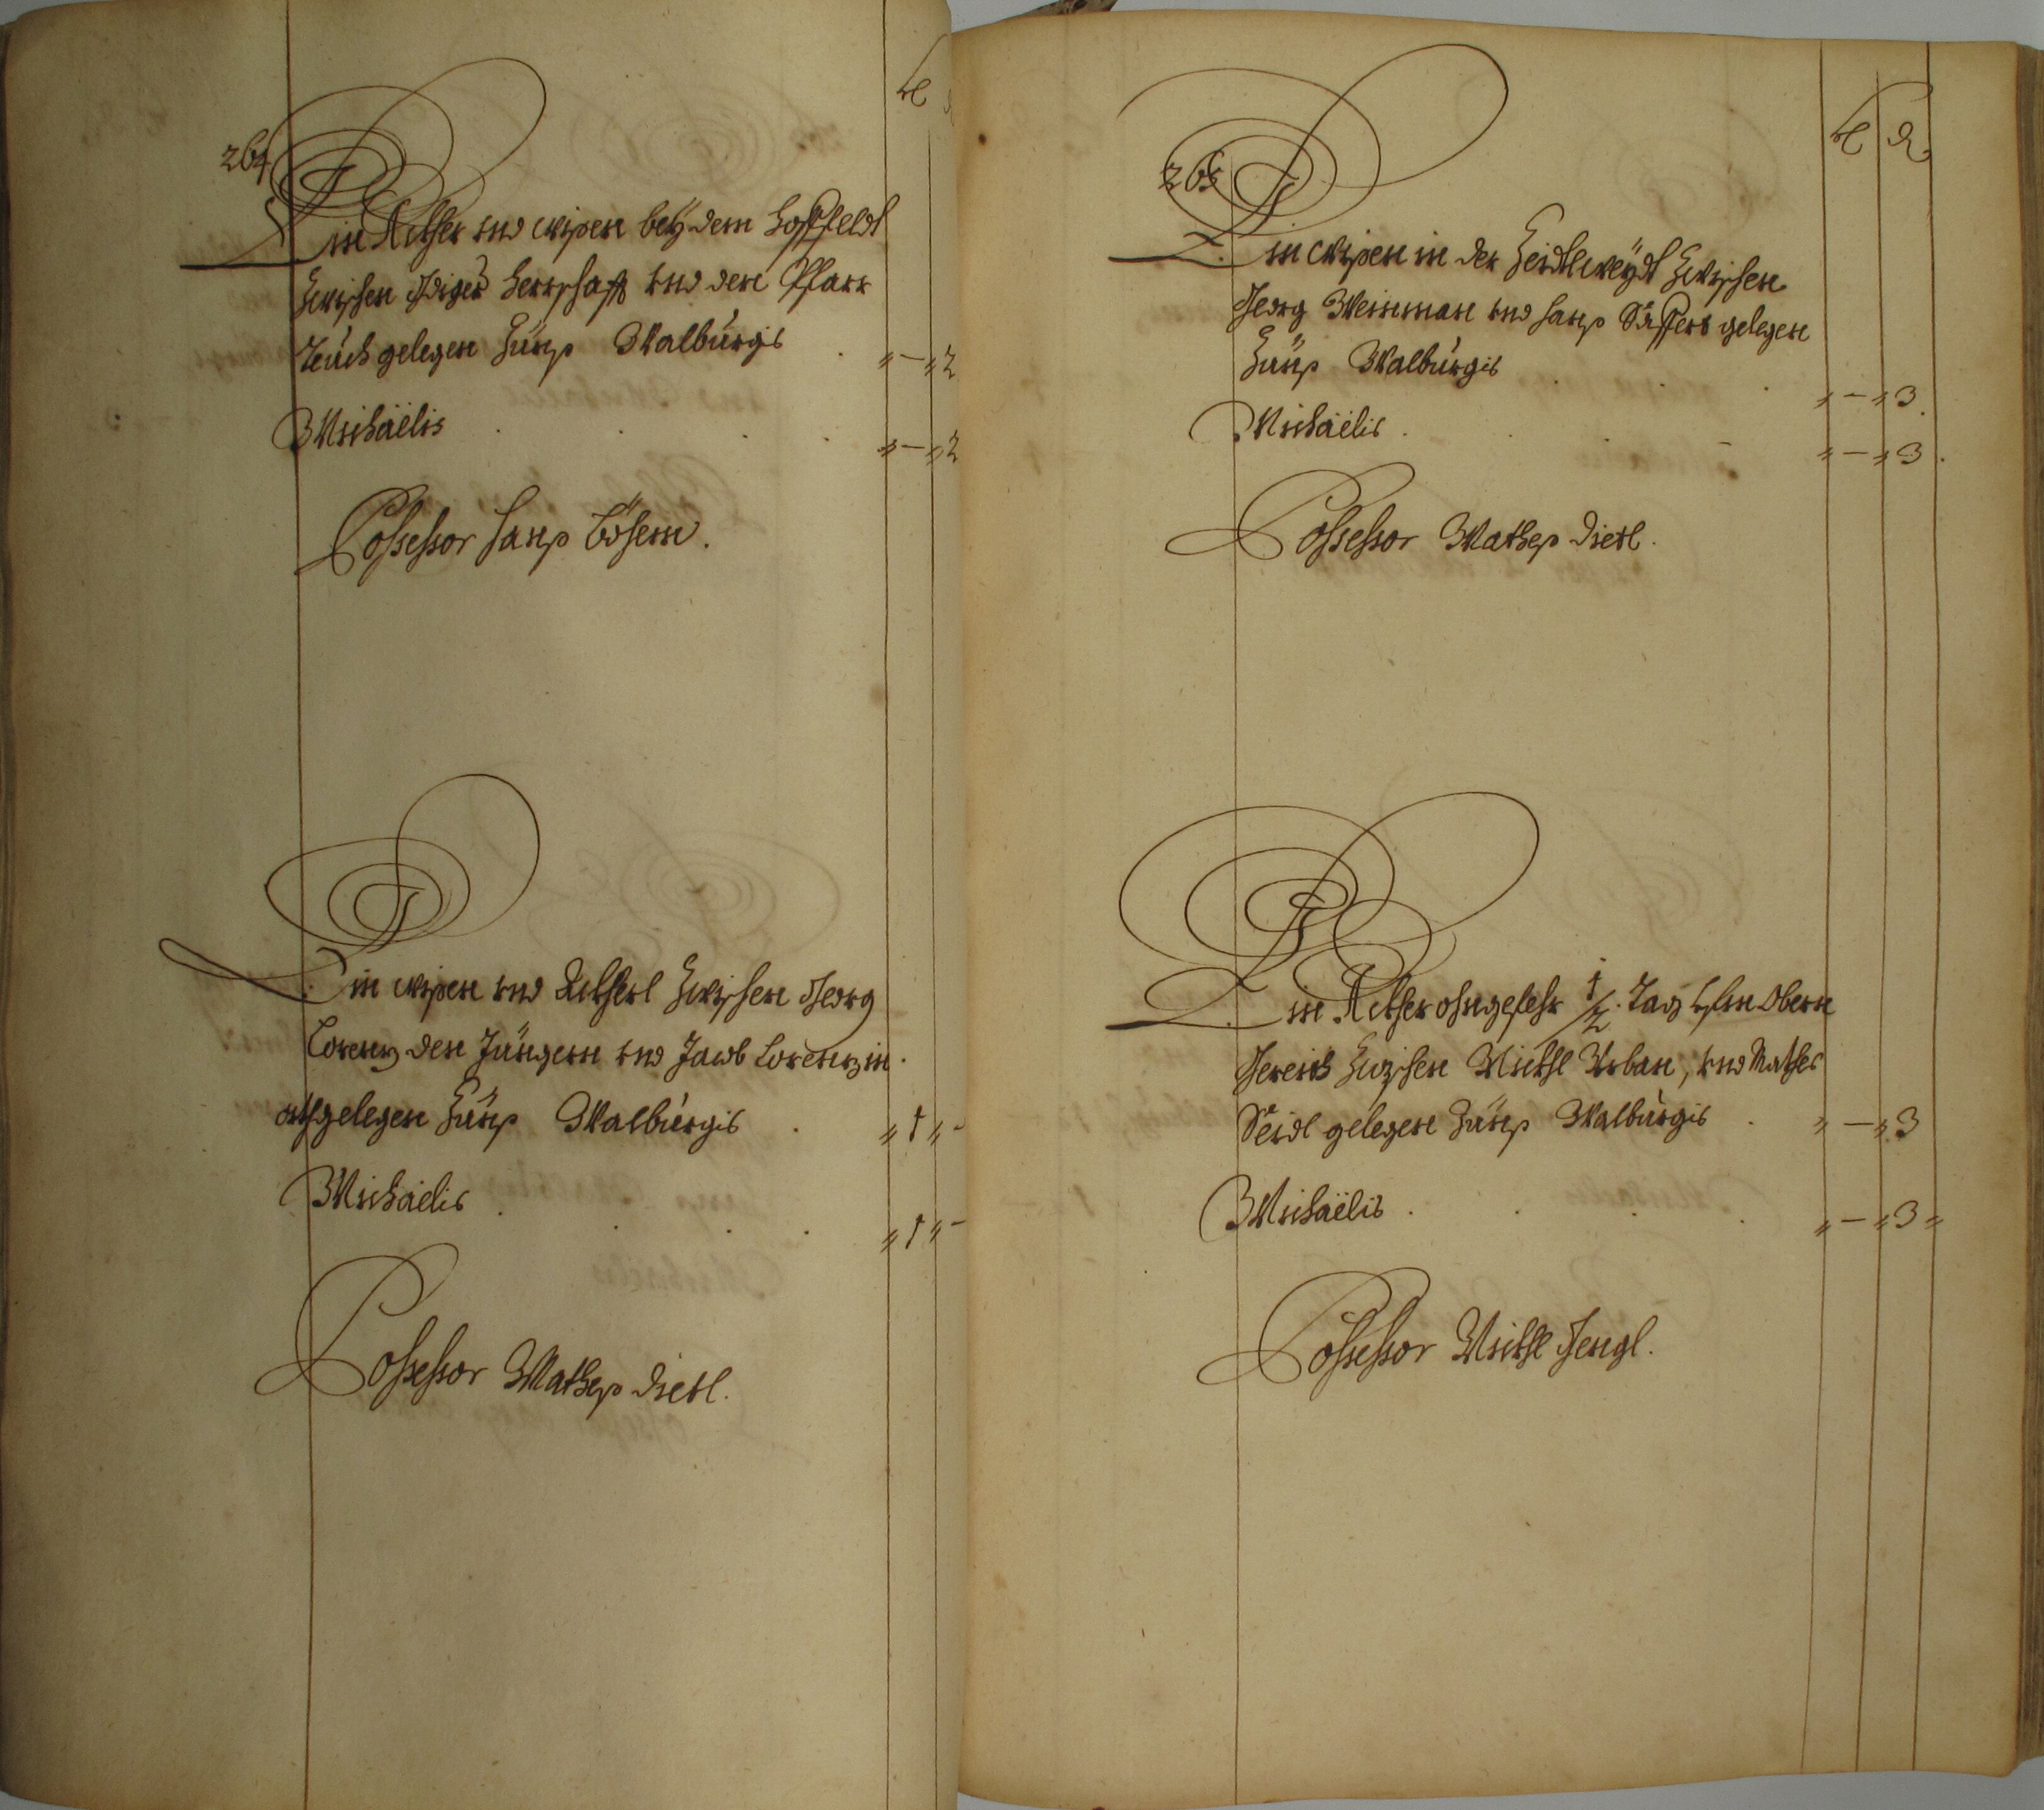 264
Ein Ackher vnd wisen beÿ dem Hoffeldt
Zwischen Gdiger Herrschafft vnd den Pfarr
Teüch gelegen Zünst Walburgis „ — „ 2
Michaëlis „ — „ 2
Possessor Hanß Bösem.
Ein wisen vnd Ackherl Zwischen Georg
Lorenz den Jüngern vnd Jacob Lorenz in
gelegen Zünst Walburgis „ 1 „ -
Michaelis „ 1 „ -
Possessor Matheß Dietl.
265
Ein wisen in der Zeidlweÿdt Zwischen
Georg Weinman vnd Hanß gelegen
Zünst Walburgis „ — „ 3.
Michaëlis „ — „ 3.
Possessor Matheß Dietl.
Ein Ackher ohngefehr 1/2. Tag Obern
Gereith Zwischen Michl Urban, vnd Mathes
Seidl gelegen Zünst Walburgis „ — „ 3
Michaëlis „ — „ 3 „
Possessor Michl Gengl.